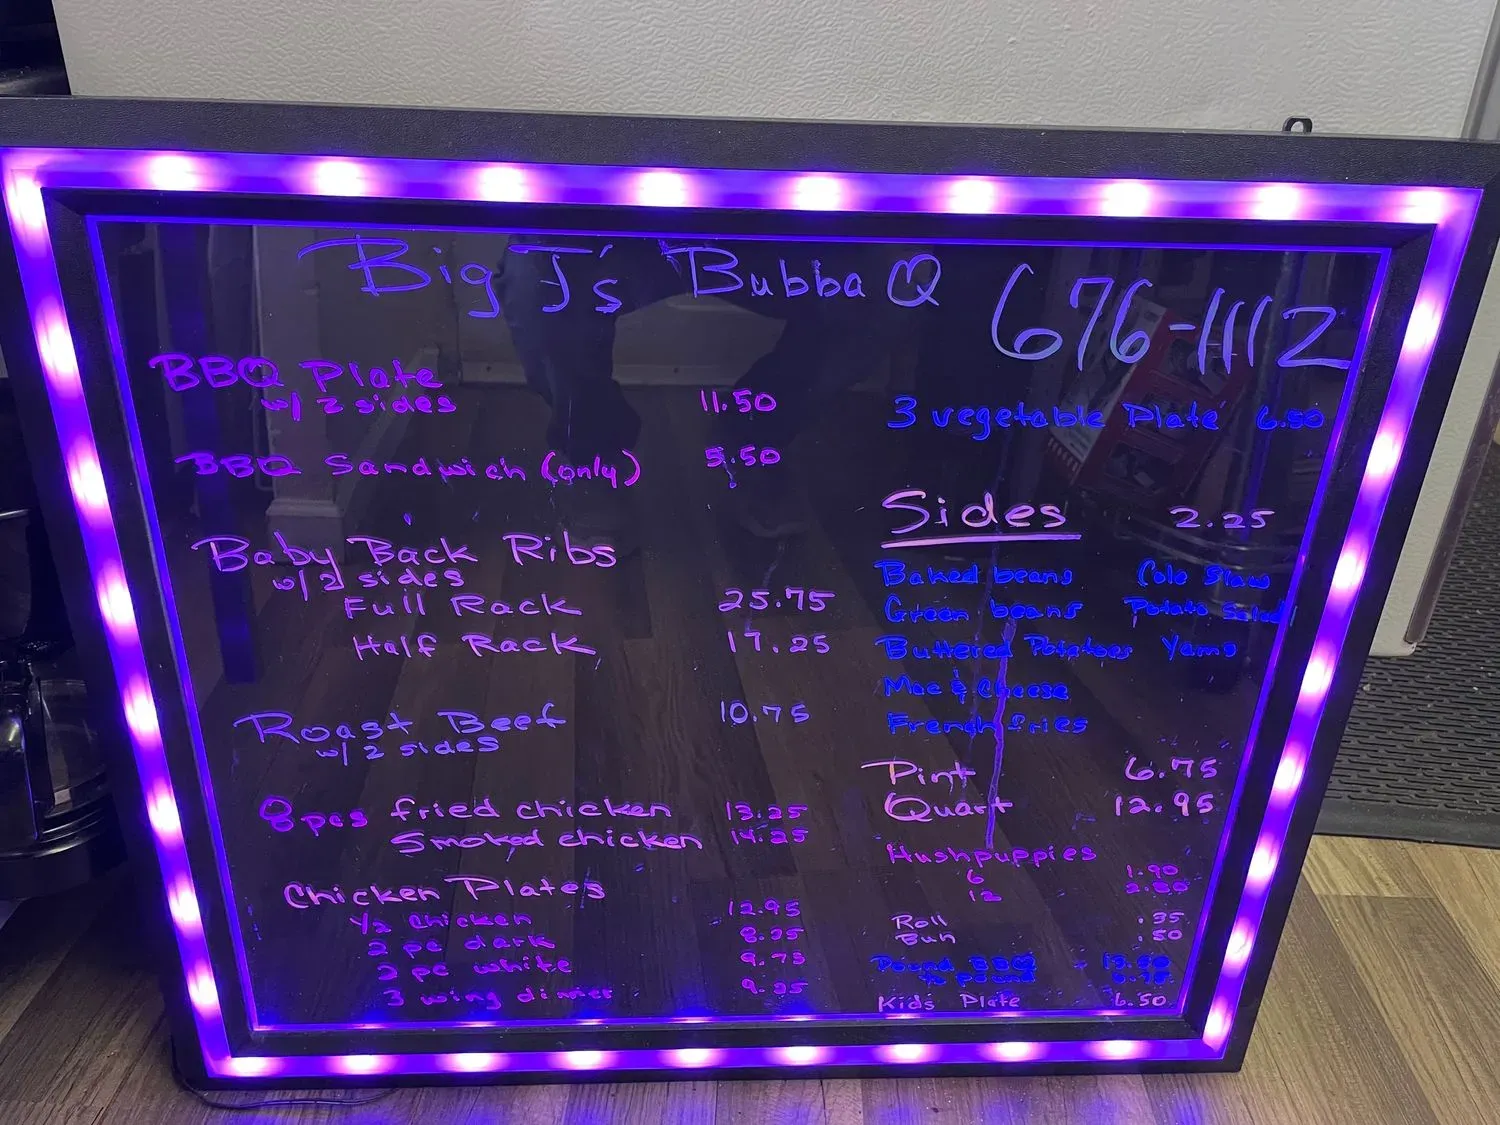 Big J's Bubba Q 676-1112
BBQ Plate
w/ 2 sides 11.50
BBQ Sandwich (only) 5.50
Baby Back Ribs
w/ 2 sides
Full Rack 25.75
Half Rack 17.25
Roast Beef 10.75
w/ 2 sides
8 pcs fried chicken 13.25
Smoked chicken 14.25
Chicken Plates
1/2 chicken 12.95
2 pc dark 8.25
2 pc white 9.75
3 wing dinner 9.25
3 vegetable Plate 6.50
Sides 2.25
Baked beans Cole Slaw
Green beans Potato Salad
Buttered Potatoes Yams
Mac & Cheese
French fries
Pint 6.75
Quart 12.95
Hushpuppies
6 1.90
12
Roll .35
Bun .50
Pound BBQ
pound
Kids Plate 6.50